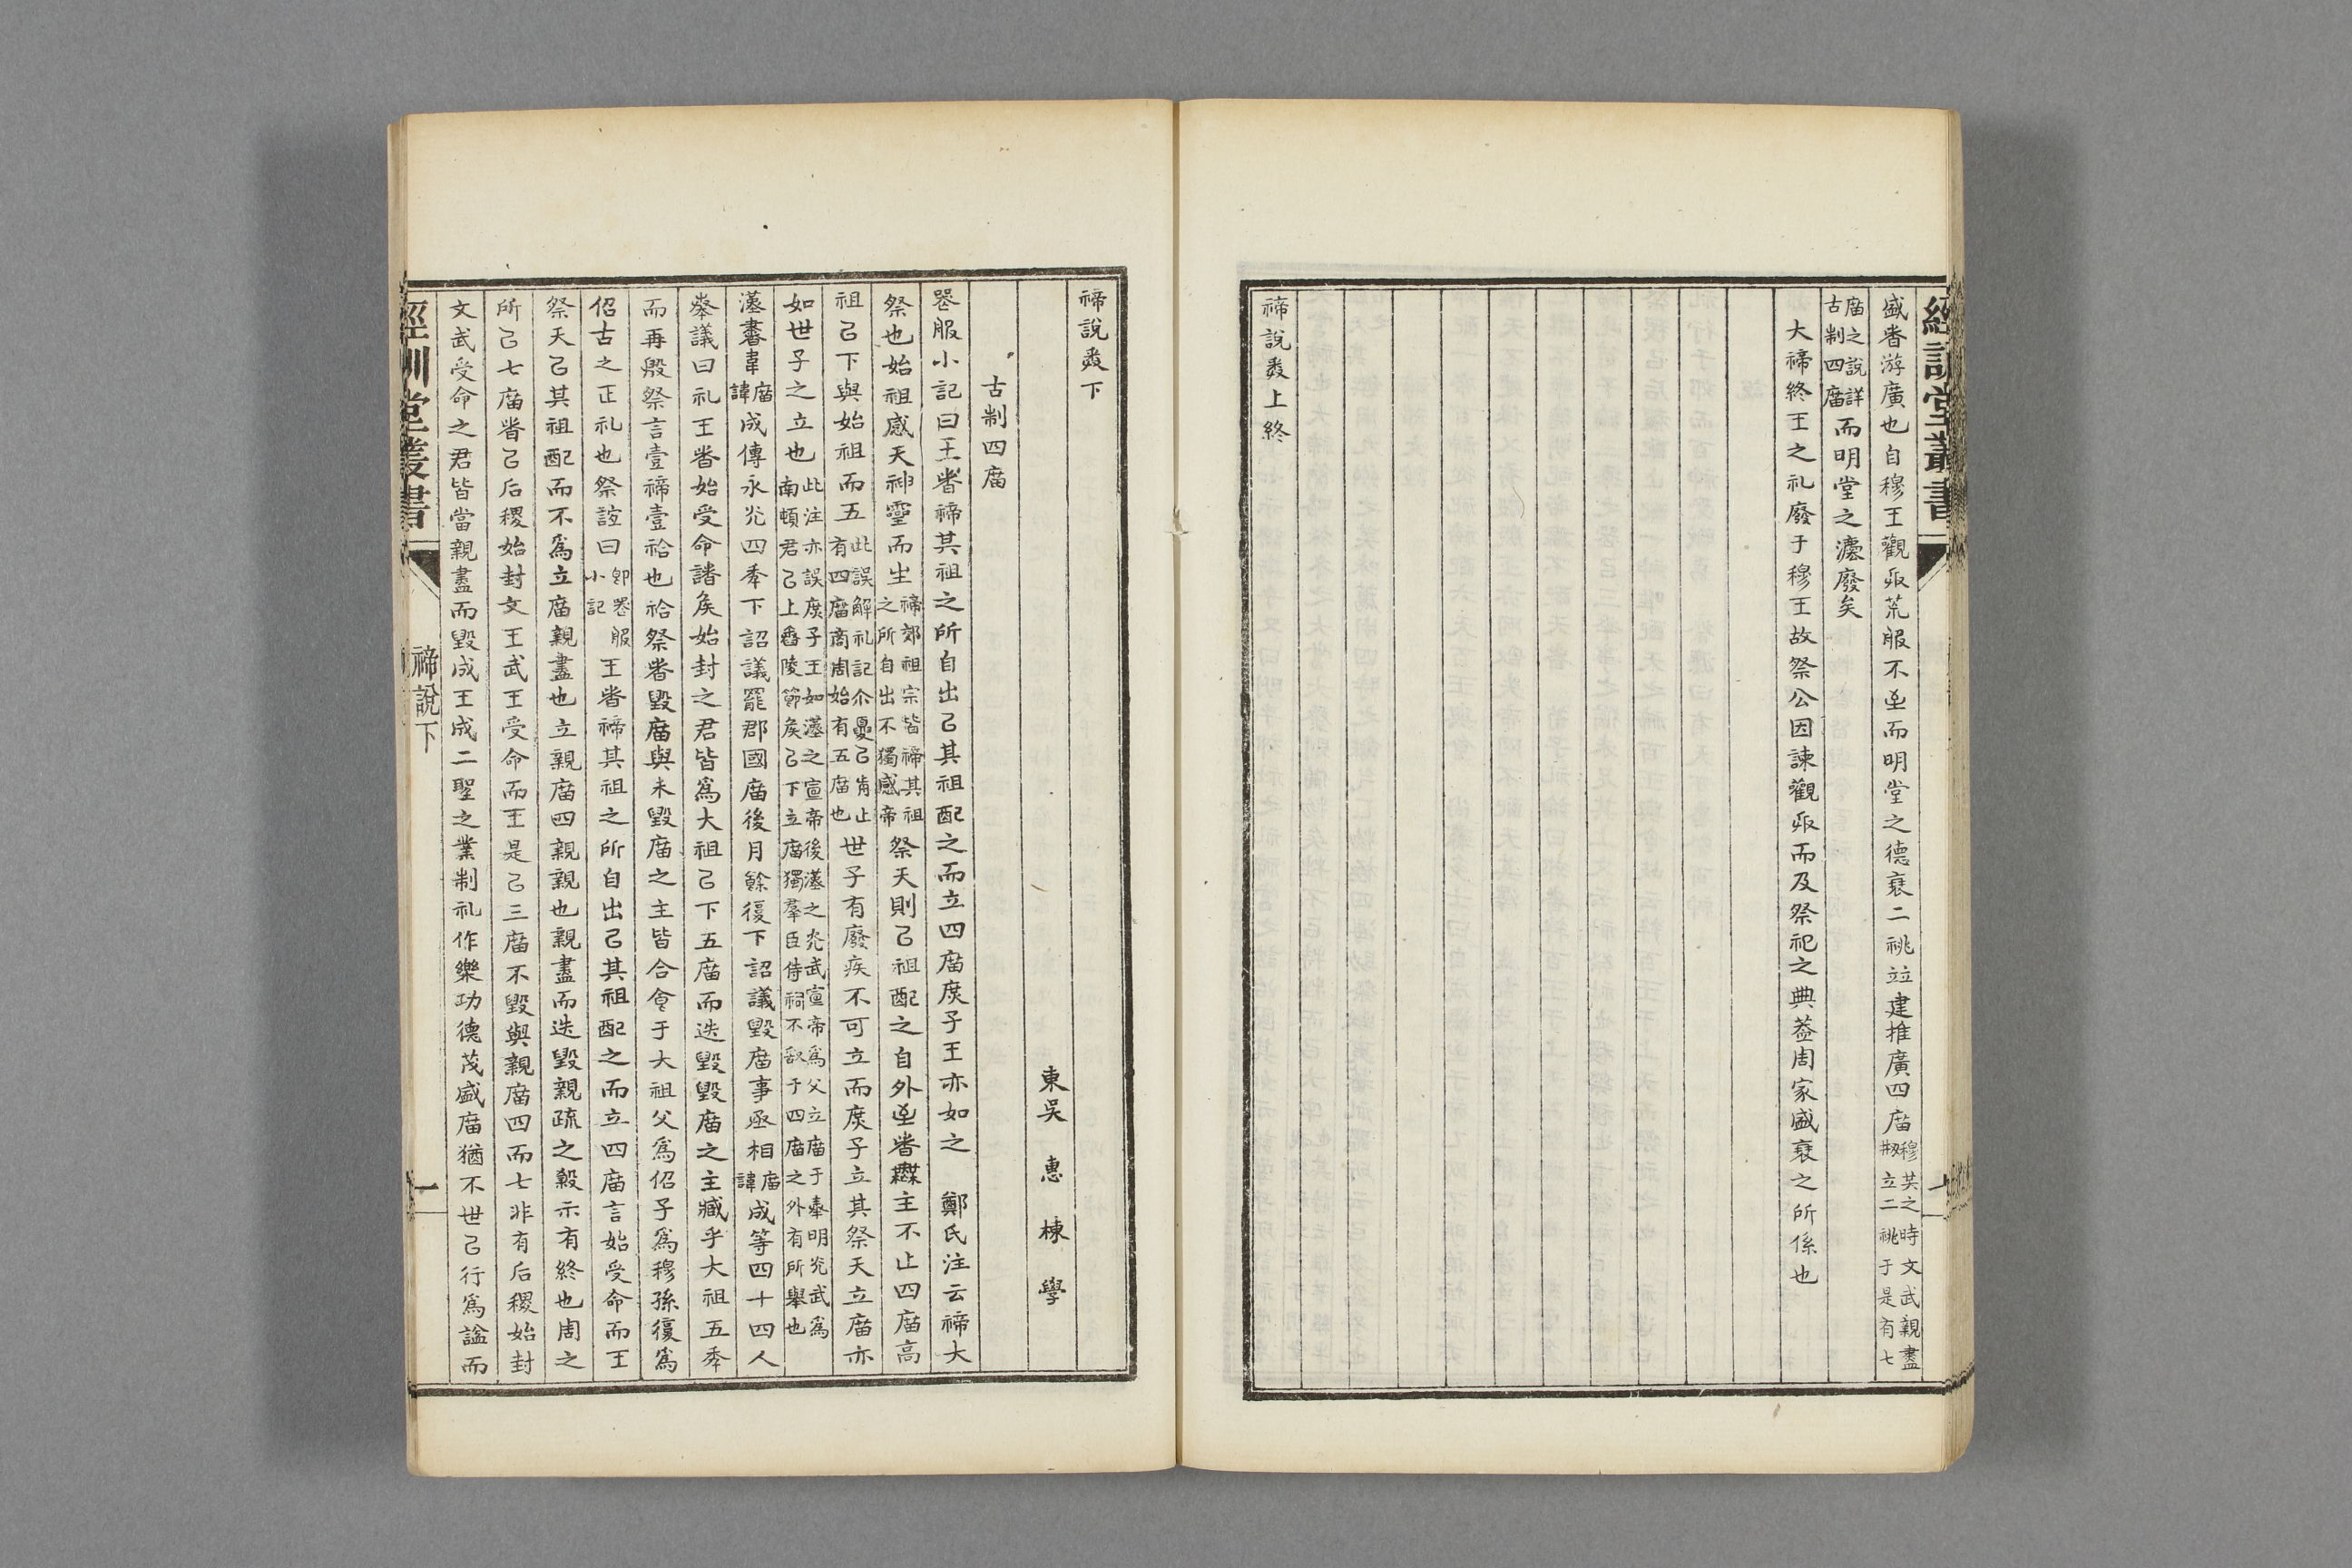 經訓堂叢書
盛者游廣也自穆王觀兵荒服不至而明堂之德衰二祧竝建推廣四庿穆共之時文武親盡
剏立二祧于是有七
庿之說詳
古制四庿而明堂之灋廢矣
大禘終王之礼廢于穆王故祭公因諫觀兵而及祭祀之典葢周家盛衰之所係也
禘說卷上終
禘說卷下
東吳 惠 棟 學
古制四庿
喪服小記曰王者禘其祖之所自出㠯其祖配之而立四庿庶子王亦如之 鄭氏注云禘大
祭也始祖感天神靈而生禘郊祖宗皆禘其祖
之所自出不獨感帝祭天則㠯祖配之自外至者無主不止四庿高
祖㠯下與始祖而五此誤解礼記尒憂㠯肯止
有四庿商周始有五庿也世子有廢疾不可立而庶子立其祭天立庿亦
如世子之立也此注亦誤庶子王如漢之宣帝後漢之光武宣帝爲父立庿于奉明光武爲
南頓君㠯上舂陵節矦㠯下立庿獨羣臣侍祠不敢于四庿之外有所舉也
漢書韋庿
諱成傳永光四秊下詔議罷郡國庿後月餘復下詔議毀庿事丞相庿
諱成等四十四人
奏議曰礼王者始受命諸矦始封之君皆爲大祖㠯下五庿而迭毀毀庿之主臧乎大祖五秊
而再殷祭言壹禘壹祫也祫祭者毀庿與未毀庿之主皆合食于大祖父爲佋子爲穆孫復爲
佋古之正礼也祭誼曰卽喪服
小記王者禘其祖之所自出㠯其祖配之而立四庿言始受命而王
祭天㠯其祖配而不爲立庿親盡也立親庿四親親也親盡而迭毀親疏之殺示有終也周之
所㠯七庿者㠯后稷始封文王武王受命而王是㠯三庿不毀與親庿四而七非有后稷始封
文武受命之君皆當親盡而毀成王成二聖之業制礼作樂功德茂盛庿猶不世㠯行爲諡而
經訓堂叢書
禘說下
一